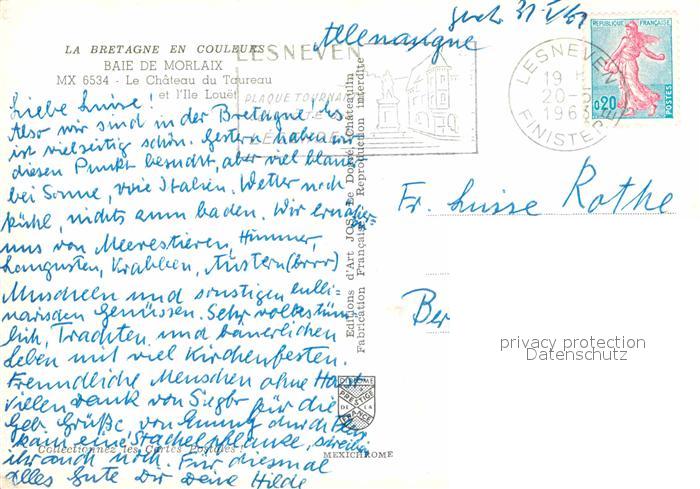 gesch. 31.V.61
Allemangne
LA BRETAGNE EN COULEURS
BAIE DE MORLAIX
MX 6534 - Le Château du Taureau
et l'Ile Louët
LESNEVEN
PLAQUE TOURNA
LESNEVEN
19 H
20 -
196
FINISTERE
REPUBLIQUE FRANÇAISE
0,20
POSTES
Liebe Luise!
Also wir sind in der Bretagne! Es
ist vielseitig schön. Gestern haben wir
diesen Punkt besucht, aber viel blauer
bei Sonne, wie Italien. Wetter noch
kühl, nichts zum baden. Wir ernähren
uns von Meerestieren, Hummer,
Langusten, Krabben, Austern (brrr)
Muscheln und sonstigen kulli=
narischen Genüssen. Sehr volkstüm
lich, Trachten und bäuerlichen
Leben mit viel Kirchenfesten.
Freundliche Menschen ohne Hast
vielen Dank von für die
Geb. Grüße von
kam eine Stachelpflanze, schreibe
ihr auch noch. Für diesmal
alles Gute Dir Deine Hilde
Editions d'Art JOS Le Doaré, Châteaulin
Fabrication Française Reproduction interdite
Fr. Luise Rothe
Ber
privacy protection
Datenschutz
PRESTIGE
DE LA
FRANCE
MEXICHROME
Collectionnez les Cartes Postales!